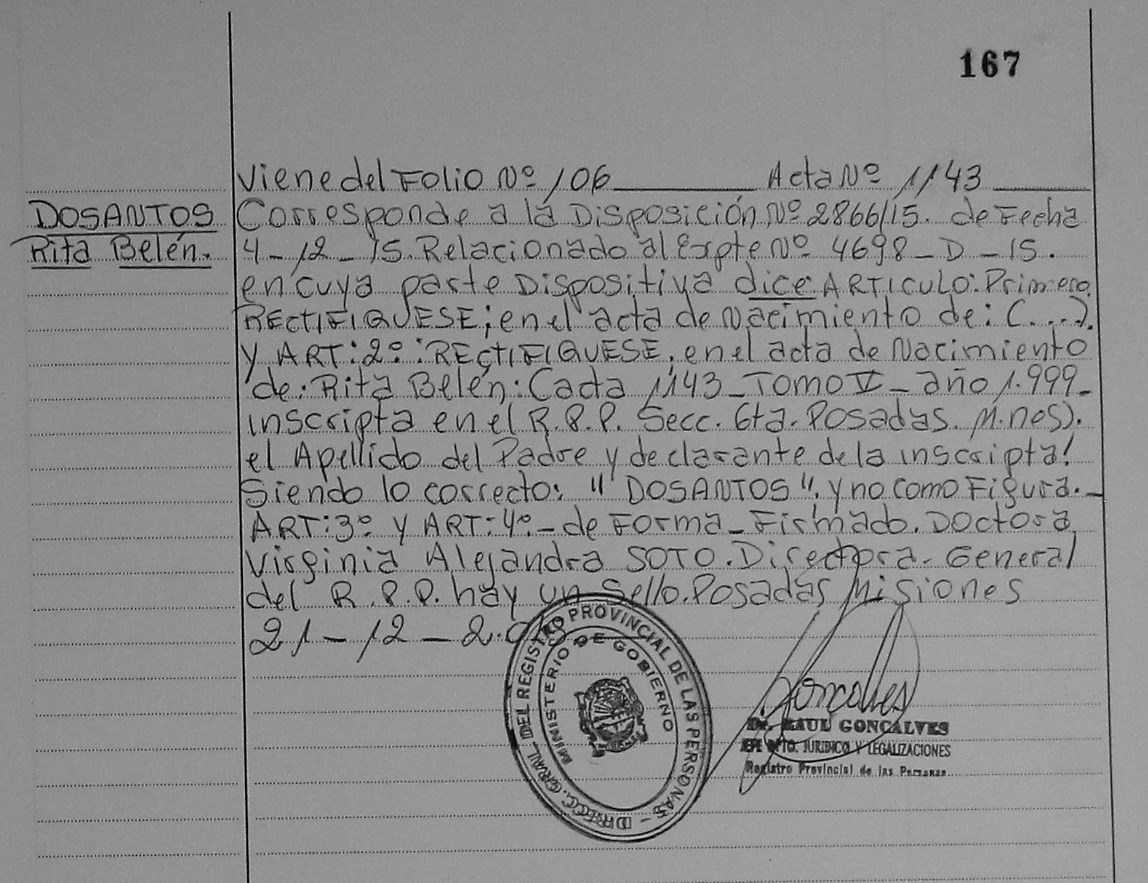 167
Viene del Folio Nº 106 Acta Nº 1143
DOSANTOS
Rita Belén.
Corresponde a la Disposición Nº 2866/15. de Fecha
4-12-15. Relacionado al Expte Nº 4698-D-15.
en cuya parte Dispositiva dice: ARTICULO: Primero.
RECTIFIQUESE; en el acta de Nacimiento de: (...).
y ART: 2º: RECTIFIQUESE, en el acta de Nacimiento
de: Rita Belén: Cacta 1143 - TOMO V - año 1.999-
inscripta en el R.P.P. Secc. 6ta. Posadas. M.nes).
el Apellido del Padre y declarante de la inscripta!
Siendo lo correcto: "DOSANTOS". y no como Figura.-
ART: 3º y ART: 4º.- de Forma - Firmado. Doctora
Virginia Alejandra SOTO. Directora. General
del R.P.P. hay un Sello. Posadas Misiones
21-12-2.015
DIRECC. GRAL. DEL REGISTRO PROVINCIAL DE LAS PERSONAS -
MINISTERIO DE GOBIERNO
Goncalves
Dr. RAUL GONCALVES
JEFE DPTO. JURIDICO Y LEGALIZACIONES
Registro Provincial de las Personas